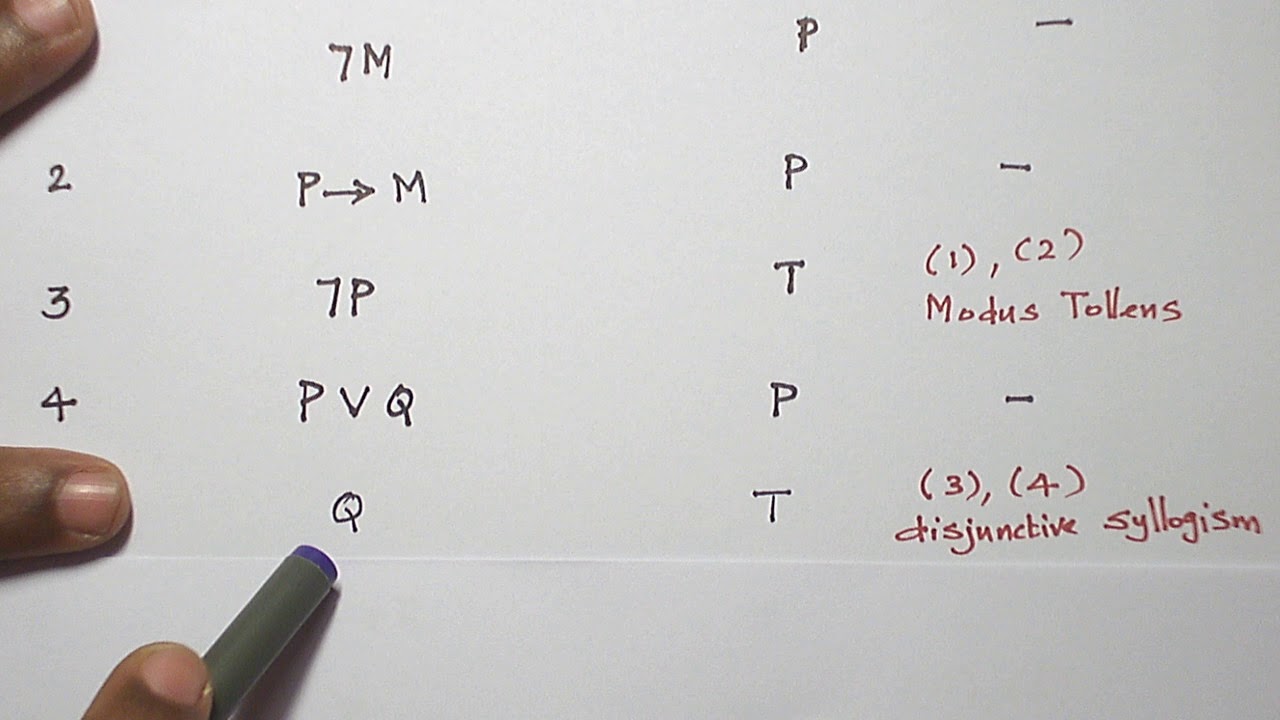 7M P —
2 P→ M P —
3 7P T (1), (2)
Modus Tollens
4 P V Q P —
Q T (3), (4)
disjunctive syllogism